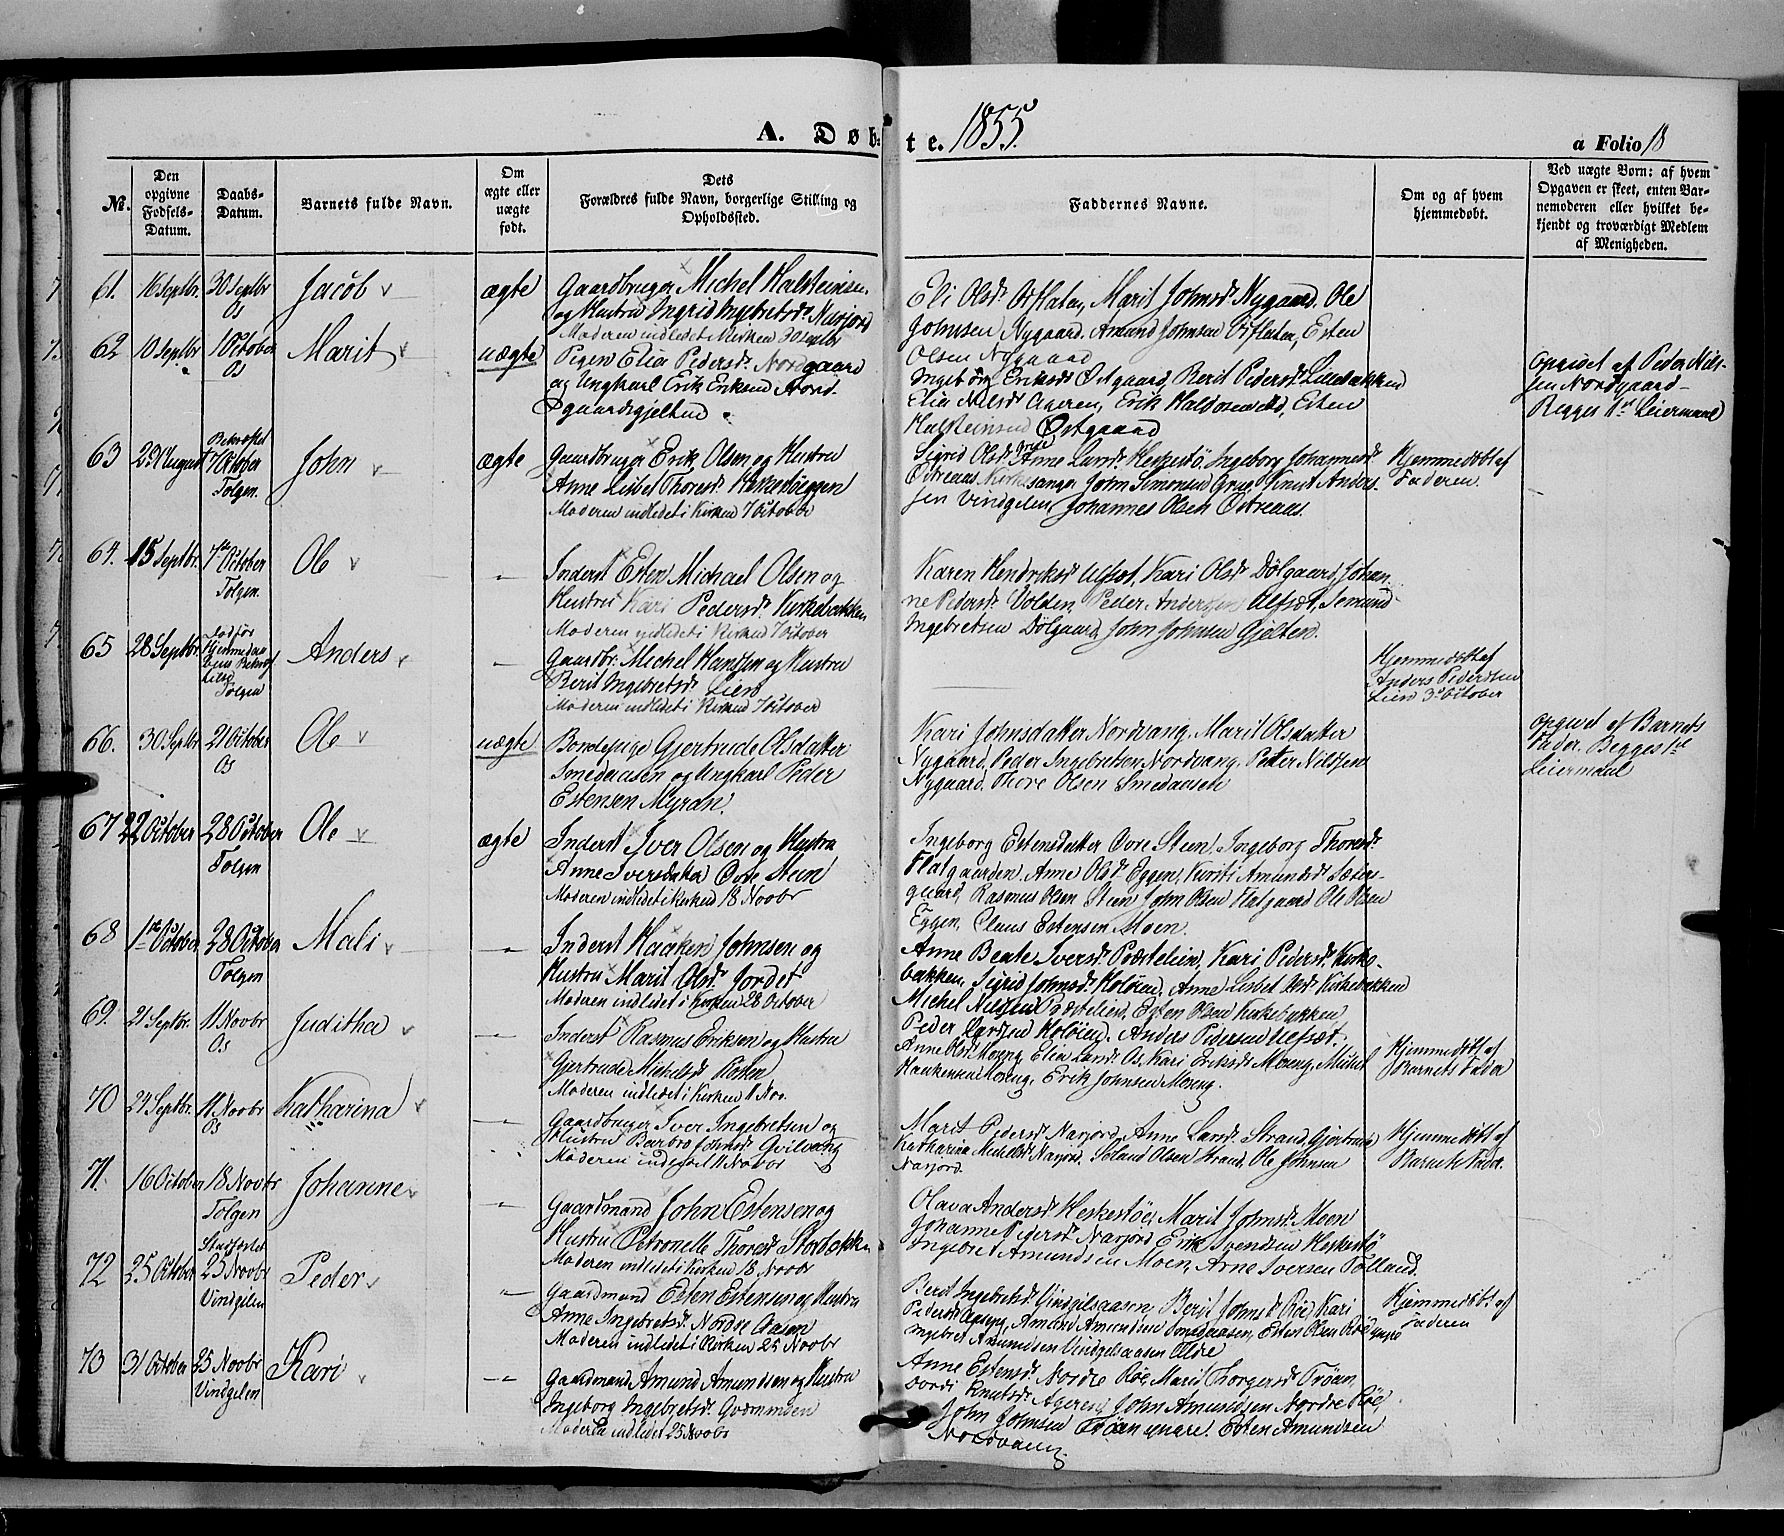 A. Døb-
te. 1855.
a Folio 18
No.
Den opgivne Fødsels-Datum.
Daabs-Datum.
Barnets fulde Navn.
Om ægte eller uægte født.
Dets Forældres fulde Navn, borgerlige Stilling og Opholdssted.
Faddernes Navne.
Om og af hvem hjemmedøbt.
Ved uægte Børn: af hvem Opgaven er skeet, enten Barnemoderen eller hvilket bekjendt og troværdigt Medlem af Menigheden.
61. 16 Septbr. 30 Septbr Os Jacob ægte
Gaardbruger Michel Halsteinsen
og Hustru Ingrid Ingebretsdr Narjord
Moderen indledet i Kirken 30 Septbr
Eli Olsdr Osflaten, Marit Johnsdr Nygaard, Ole
Johnsen Nygaard. Amund Johnsen Osflaten, Esten
Olsen Nygaard
62 10 Septbr 1 October Os Marit uægte
Pigen Elia Pedersdr Nordgaard
og Ungkarl Erik Eriksen Nord-
gaardsgjelten
Ingeborg Eriksdr Østgaard, Berit Pedersdr Lillebakken
Elia Nilsdr Ageren, Erik Haldosen, Esten
Halsteinsen Østgaard
opgivet af Peder Nils-
sen Nordgaard
Begges 1ste Leiermaal
63 29 August Bekræftet 7 October Tolgen. John ægte
Gaardbruger Erik Olsen og Hustru
Anne Lisbet Thoresdr Kirkebøggen
Moderen indledet i Kirken 7 October
Sigrid Olsdr Anne Larsdr Heskestø, Ingeborg Johannesdr
Østreaas, Kirkesanger John Simensen Grue Knut Anders-
sen Vindgelen, Johannes Olsen Østreaas.
Hjemmedøbt af
Faderen.
64. 15 Septbr. 7de October Tolgen. Ole —
Inderst Esten Michael Olsen og
Hustru Kari Pedersdr Kirkebakken
Moderen indledet i Kirken 7 October
Karen Hendriksdr Ulfset, Kari Olsdr Dølgaard, Johan-
ne Pedersdr Volden, Peder Andersen Ulfset, Semund
Ingebretsen Dølgaard, John Johnsen Gjelten.
65 28 Septbr. Tolgen Anders —
Gaardbr. Michel Hansen og Hustru
Berit Ingebretsdr Lien
Moderen indledet i Kirken 7 October
Hjemmedøbt af
Anders Pedersen
Lien 3 October
66. 30 Septbr 21 October Os Ole uægte
Bondepige Gjertrude Olsdatter
Smedaasen og Ungkarl Peder
Estensen Myran.
Kari Johnsdatter Nordvang, Marit Olsdatter
Nygaard, Peder Ingebretsen Nordvang, Petter Nilssen
Nygaard. Thore Olsen Smedaasen
opgivet af Barnets
Fader. Begges 1ste
Leiermaal
67 22 October 28 October Tolgen Ole ægte
Inderst Iver Olsen og Hustru
Anne Iversdatter Øvre Steen
Moderen indledet i Kirken 18 Novbr
Ingeborg Estensdatter Øvre Steen, Ingeborg Thoresdr
Flatgaarden, Anne Olsdr Eggen, Kirsti Amundsdr
gaard, Rasmus Olsen Steen John Olsen Flatgaard Ole Olsen
Eggen, Claus Estensen Moen.
68 1ste October 28 October Tolgen Mali —
Inderst Haaken Johnsen og
Hustru Marit Olsdr Jordet
Moderen indledet i Kirken 28 October
Anne Beate Iversdr Præstelien, Kari Pedersdr Kirke-
bakken, Sigrid Johnsdr Holøien, Anne Lisbet Olsdr Kirkebakken
Michel Nilssen Præstelien, Esten Olsen Kirkebakken
Peder Larssen Holøien, Anders Pedersen Ulfset.
69. 21 Septbr. 11 Novbr Os Juditha —
Inderst Rasmus Eriksen og Hustru
Gjertrude Michelsdr
Moderen indledet i Kirken 11 Nov.
Anne Olsdr Moreng, Elia Larsdr Os, Kari Eriksdr Moreng, Michel
Haukensen Moreng, Erik Johnsen Moreng.
Hjemmedøbt af
Barnets Fader
70 24 Septbr. 11 Novbr Os Katharina —
Gaardbruger Iver Ingebretsen og
Hustru Barbro Johnsdr
Moderen indført 11 Novbr
Marit Pedersdr Narjord, Anne Larsdr Strand, Gjertrude
Katharina Michelsdr Narjord, Erland Olsen Strand, Ole Johnsen
Narjord.
Hjemmedøbt af
Barnets Fader.
71. 16 October 18 Novbr Tolgen Johanne —
Gaardmand John Estensen og
Hustru Petronelle Thoresdr Storbækken
Moderen indledet i Kirken 18 Novbr
Olava Andersdr Heskestøe, Marit Johnsdr Moen
Johanne Pedersdr Narjord, Erik Svendsen Heskestø
Ingebret Amundsen Moen, Arne Iversen Tolland.
72 25 October Stadfæstet 25 Novbr Vindgelen Peder —
Gaardmand Esten Estensen og Hustru
Anne Ingebretsdr Nordre Aasen
Moderen indledet i Kirken 25 Novbr
Berit Ingebretsdr Vindgelsaasen, Berit Johnsdr Røe, Kari
Pedersdr Ageren, Amund Amundsen Smedaasen, Esten Olsen Røe yngre
Ingebret Amundsen Vindgelsaasen Eldre
Hjemmedøbt af
Faderen
73 31 October 25 Novbr Vindgelen Kari —
Gaardmand Amund Amundsen og Hustru
Ingeborg Ingebretsdr Qvæmmoen
Moderen indledet 25 Novbr
Anne Estensdr Nordre Røe, Marit Thorgersdr Trøan
Jordi Knutsdr Ageren, John Amundsen Nordre Røe,
John Johnsen Trøan yngre. Esten Amundsen
Nordvang